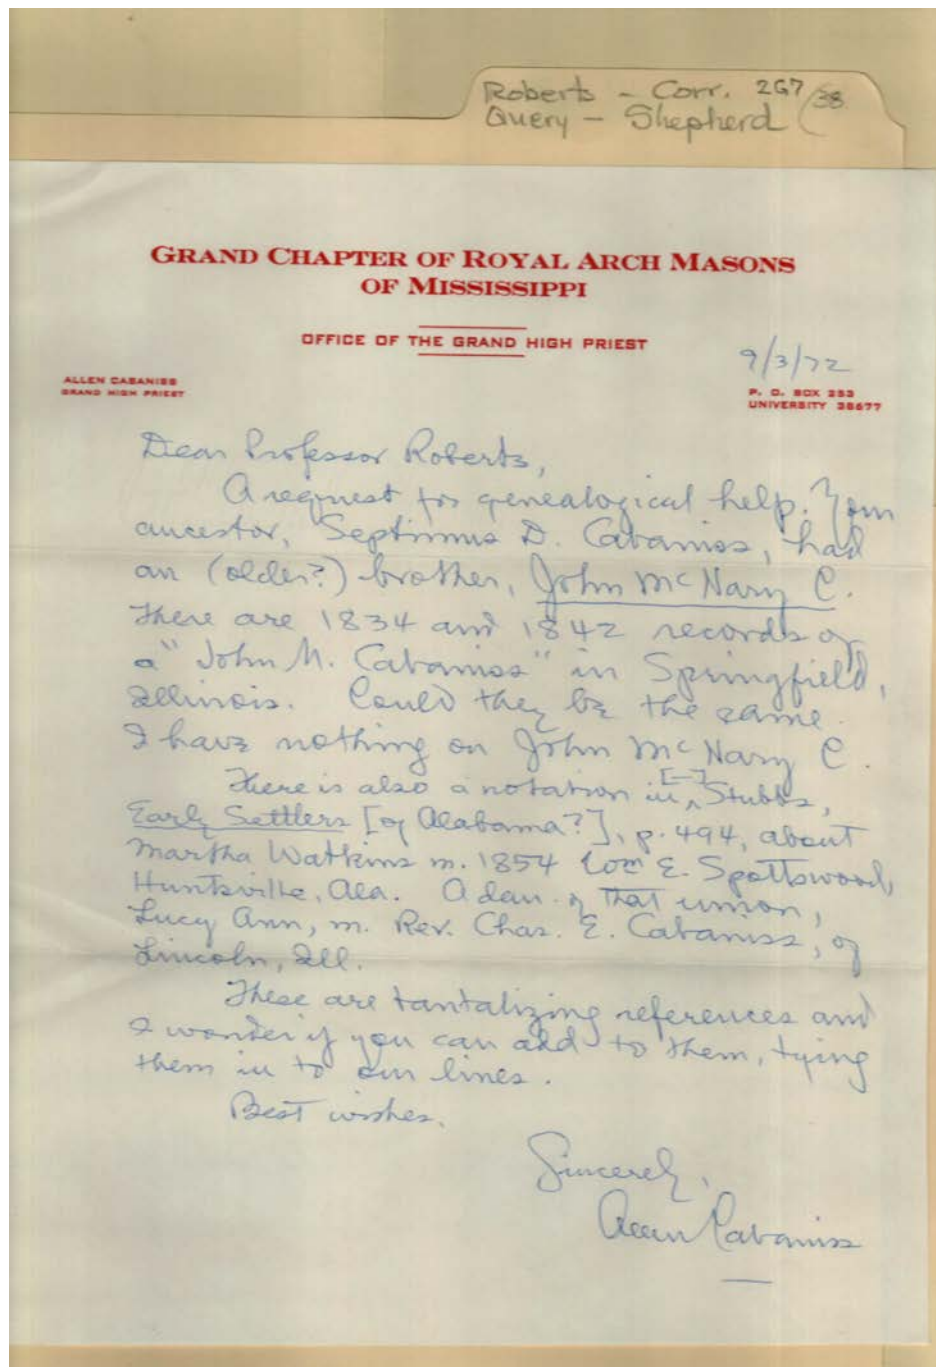 Roberts - Corr. 267/38
Query - Shepherd
GRAND CHAPTER OF ROYAL ARCH MASONS
OF MISSISSIPPI
OFFICE OF THE GRAND HIGH PRIEST
9/3/72
ALLEN CABANISS
GRAND HIGH PRIEST
P. O. BOX 253
UNIVERSITY 38677
Dear Professor Roberts,
A request for genealogical help. Your
ancestor, Septimus D. Cabaniss, had
an (older?) brother, John McNary C.
There are 1834 and 1842 records of
a "John M. Cabaniss" in Springfield,
Illinois. Could they be the same.
I have nothing on John McNary C.
There is also a notation in [—] Stubbs,
Early Settlers [of Alabama?], p. 494, about
Martha Watkins m. 1854 Wm E. Spottswood,
Huntsville, Ala. A dau. of that union,
Lucy Ann, m. Rev. Chas. E. Cabaniss, of
Lincoln, Ill.
These are tantalizing references and
I wonder if you can add to them, tying
them in to our lines.
Best wishes.
Sincerely,
Allen Cabaniss